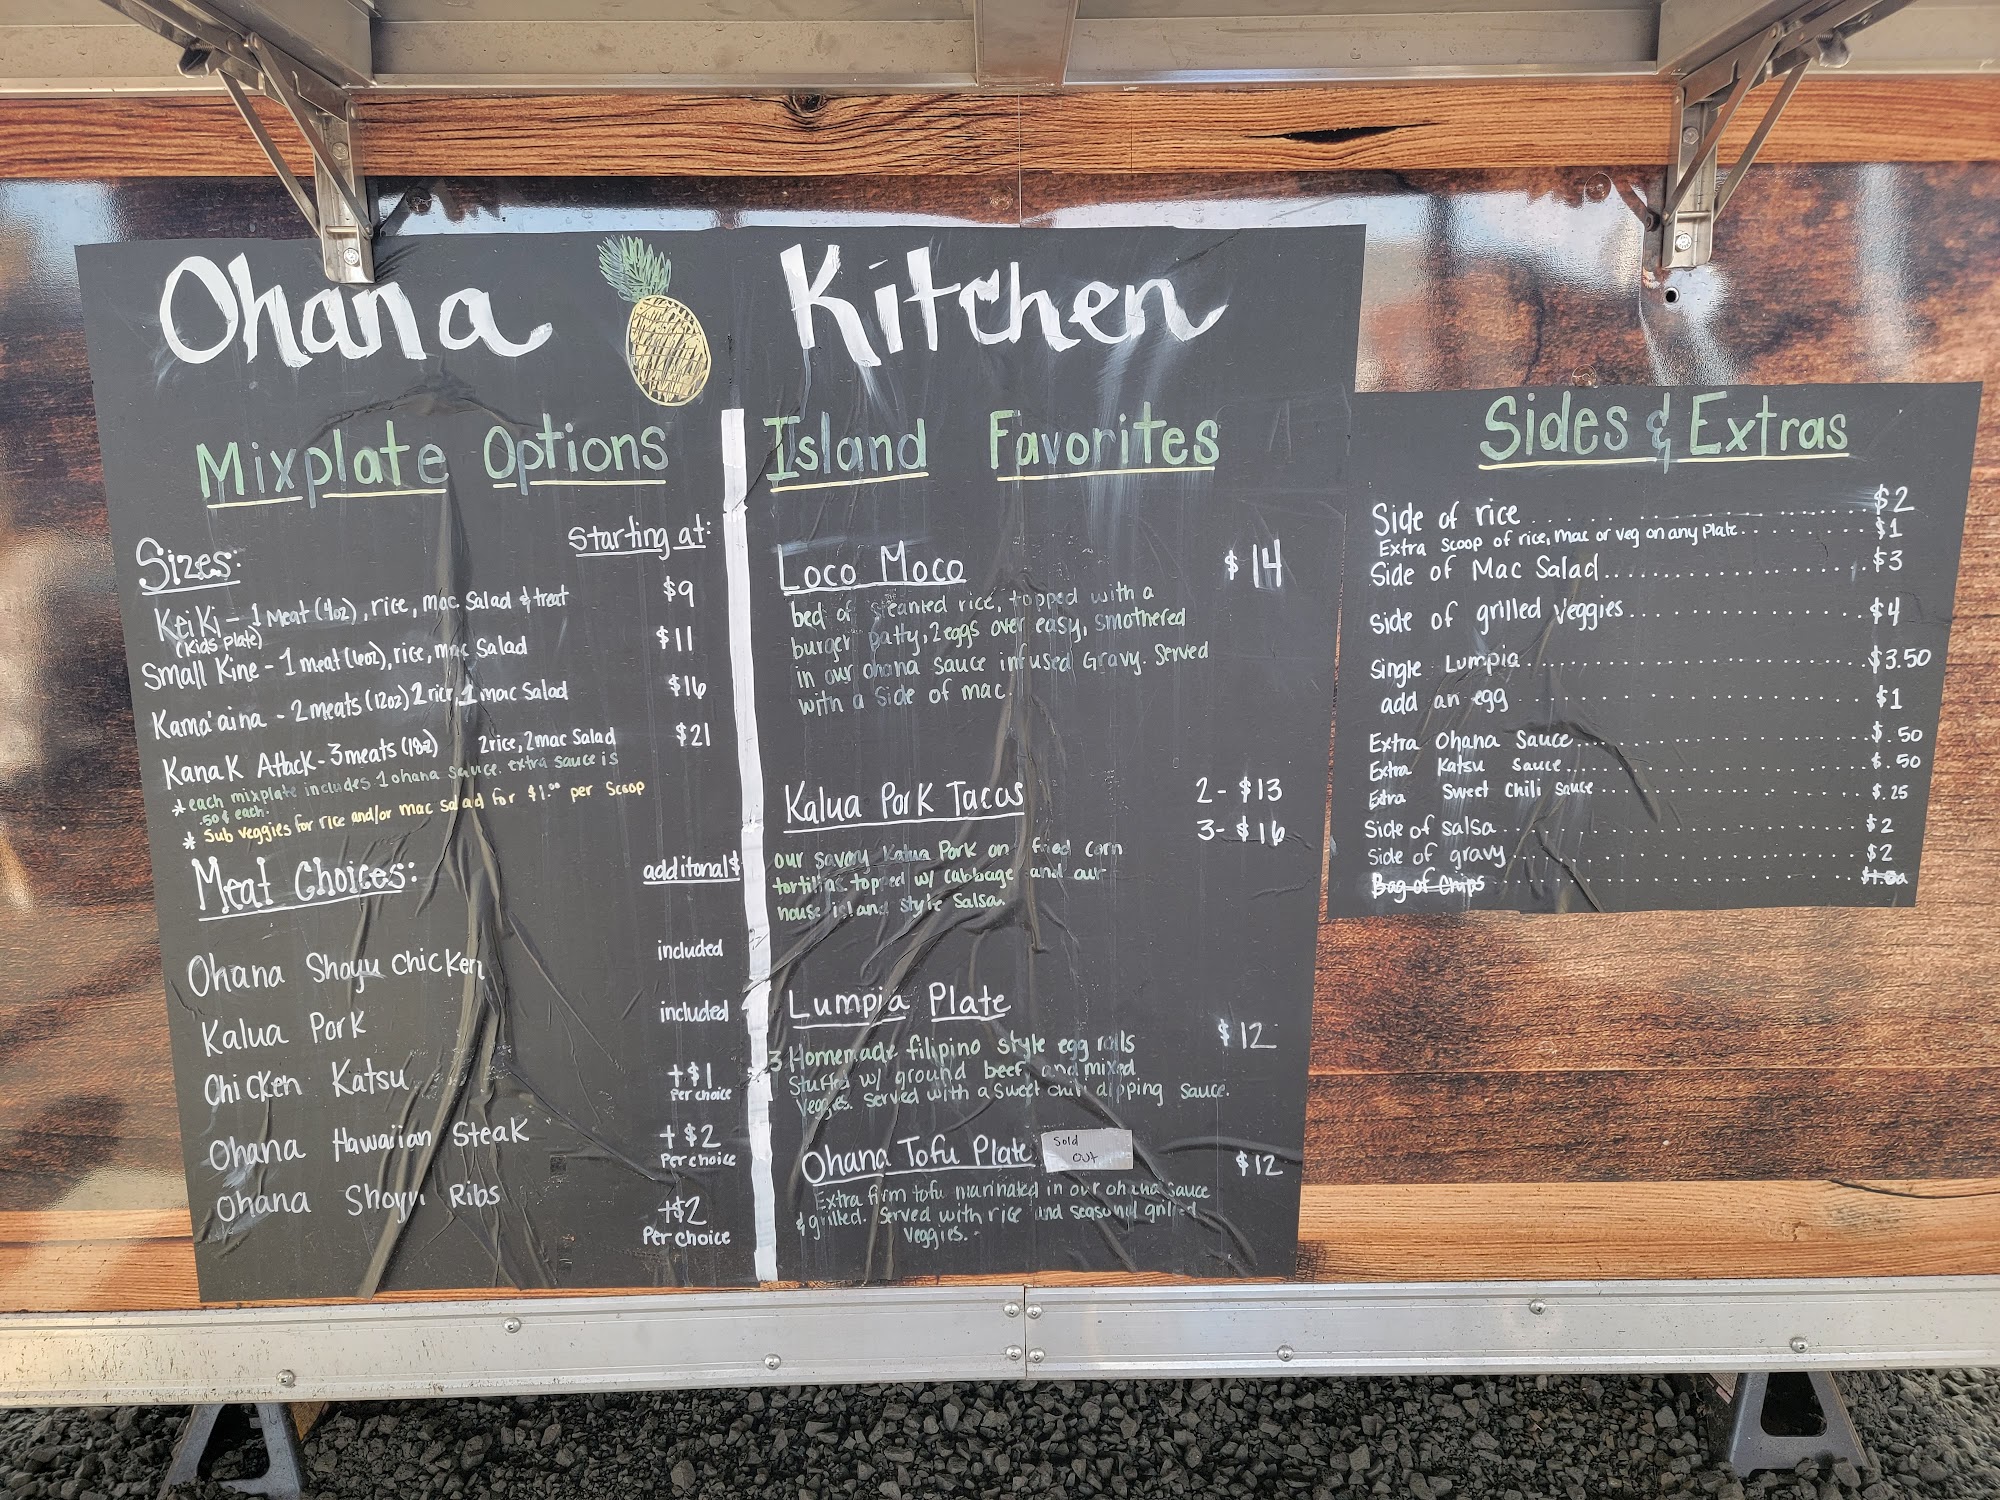 Ohana Kitchen
Mixplate Options
Sizes:
Starting at:
KeiKi - 1 Meat (4oz), rice, mac Salad & treat $9
(Kids Plate)
Small Kine - 1 meat (6oz), rice, mac Salad $11
Kama'aina - 2 meats (12oz) 2 rice, 1 mac Salad $16
KanaK Attack - 3 meats (18oz) 2 rice, 2 mac Salad $21
* each mixplate includes 1 ohana sauce. extra sauce is
.50¢ each.
* Sub veggies for rice and/or mac salad for $1.00 per scoop
Meat Choices:
additional $
Ohana Shoyu Chicken included
Kalua Pork included
Chicken Katsu +$1
Per choice
Ohana Hawaiian Steak +$2
Per choice
Ohana Shoyu Ribs +$2
Per choice
Island Favorites
Loco Moco $14
bed of steamed rice, topped with a
burger patty, 2 eggs over easy, smothered
in our ohana sauce infused Gravy. Served
with a side of mac.
Kalua Pork Tacos 2- $13
3- $16
our savory Kalua Pork on fried corn
tortillas topped w/ cabbage and our
house island style salsa.
Lumpia Plate $12
3 Homemade filipino style egg rolls
Stuffed w/ ground beef, and mixed
Veggies. Served with a sweet chili dipping sauce.
Ohana Tofu Plate Sold
OUT
$12
Extra firm tofu marinated in our ohana sauce
& grilled. Served with rice and seasonal grilled
veggies.
Sides & Extras
Side of rice $2
Extra scoop of rice, mac or veg on any plate $1
Side of Mac Salad $3
Side of grilled veggies $4
Single Lumpia $3.50
add an egg $1
Extra Ohana Sauce $.50
Extra Katsu Sauce $.50
Extra Sweet Chili Sauce $.25
Side of salsa $2
Side of gravy $2
Bag of Chips